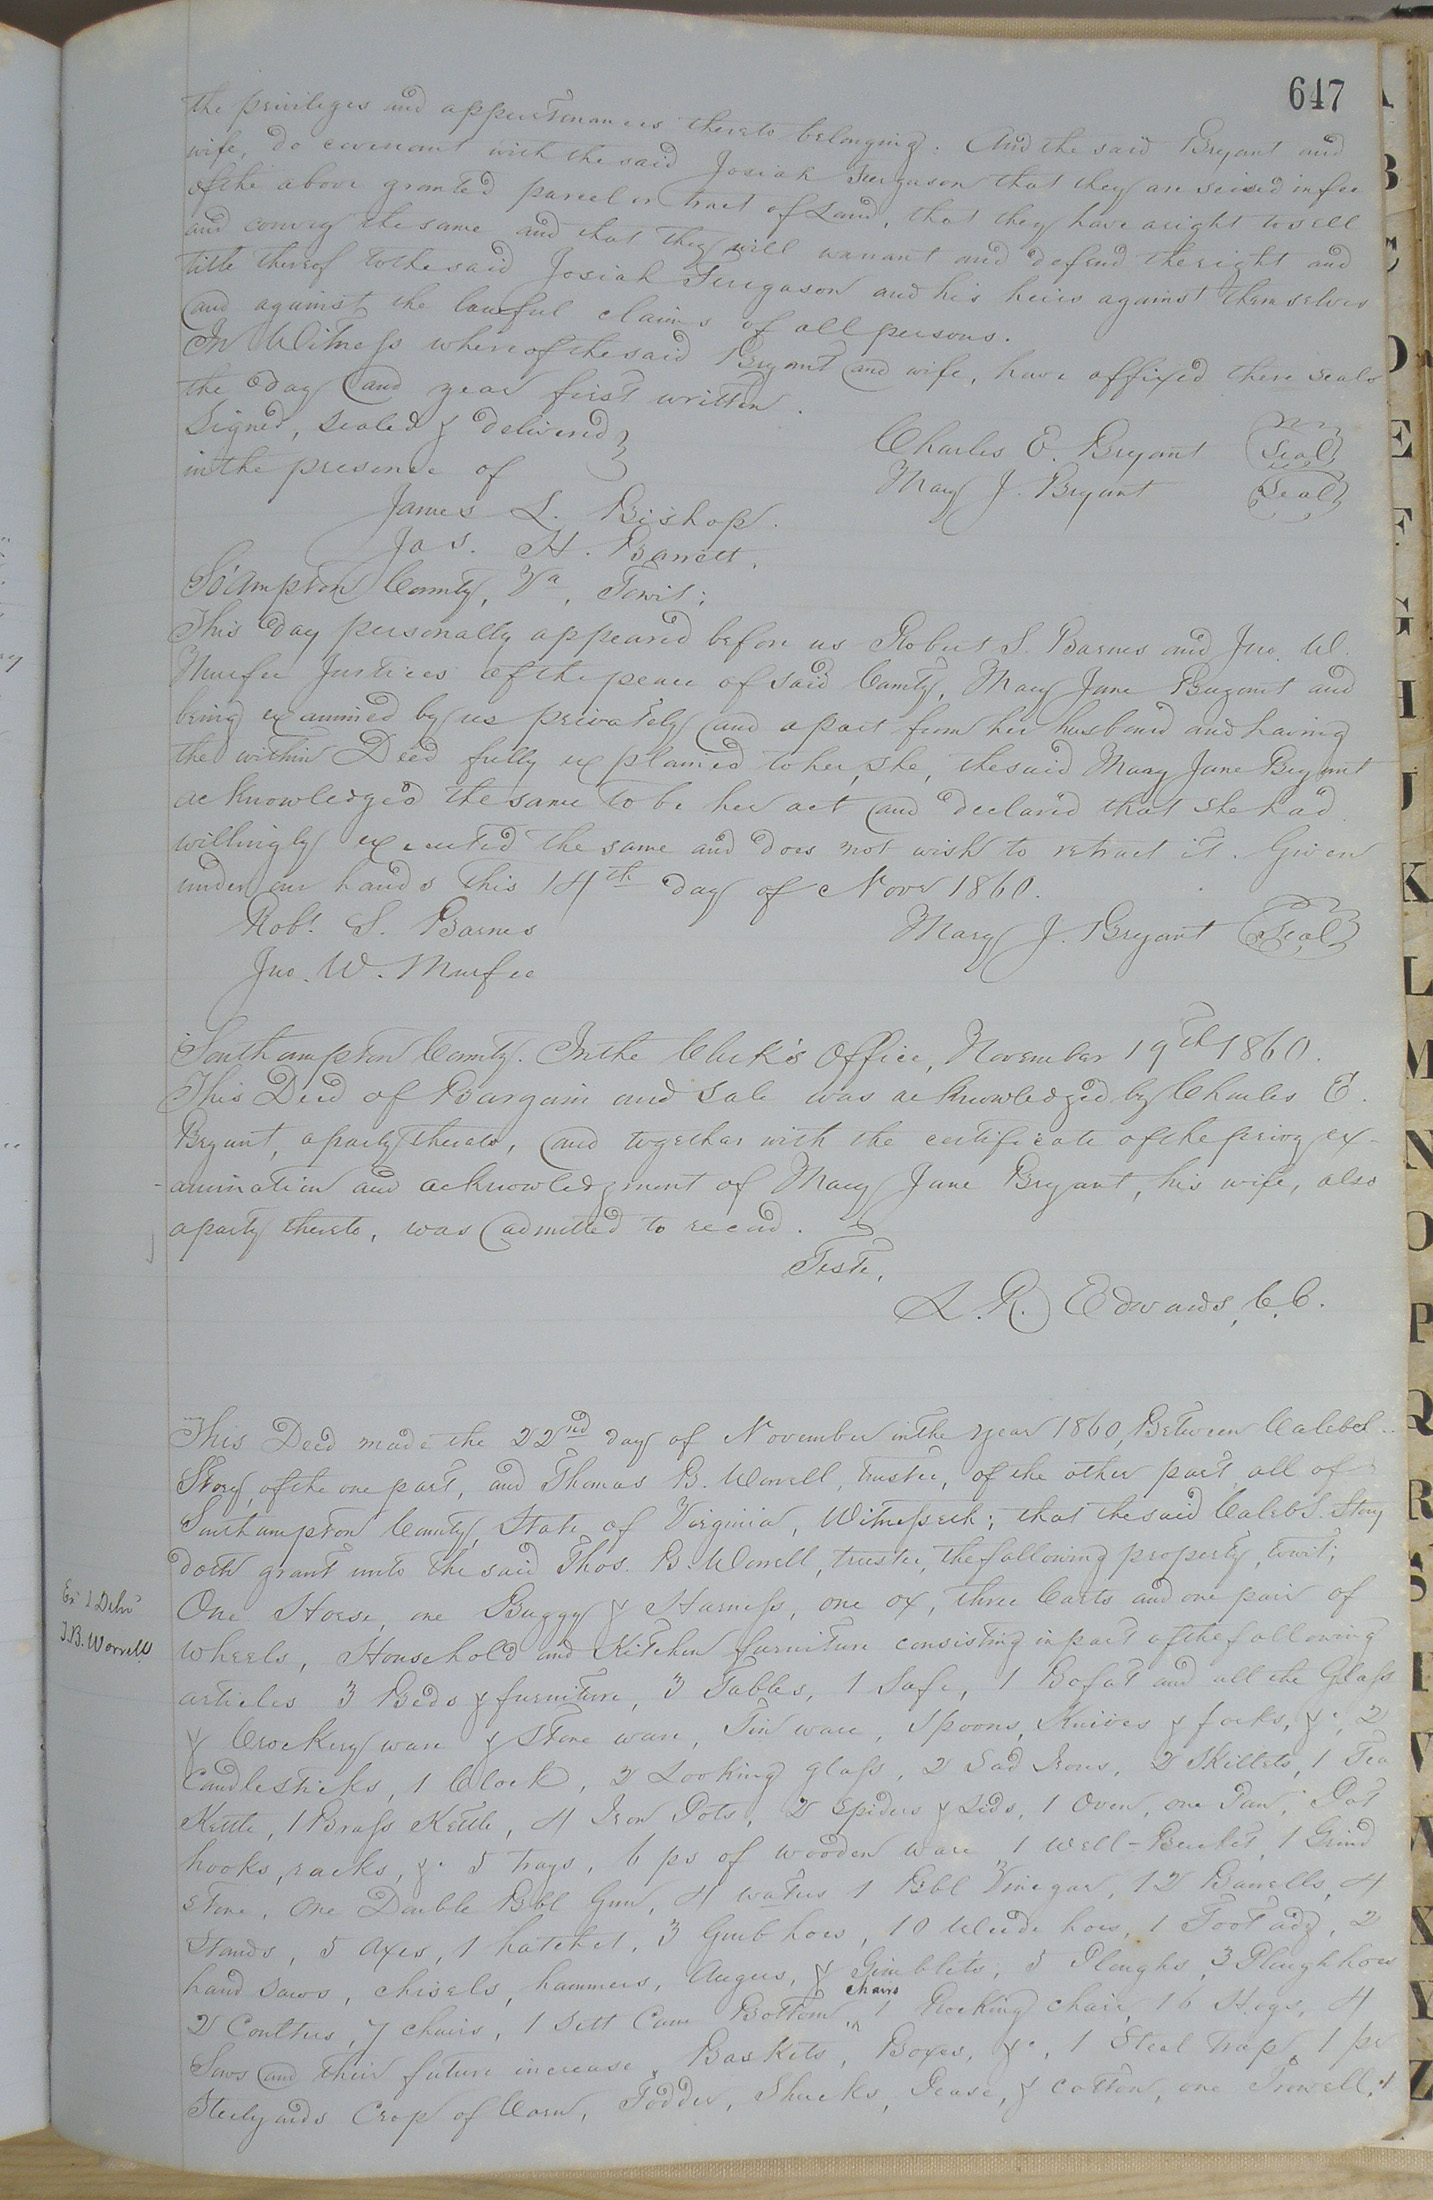 647
the privileges and appurtenances thereto belonging. And the said Bryant and
wife, do covenant with the said Josiah Furgason that they are seized in fee
of the above granted parcel or tract of Land, that they have a right to sell
and convey the same and that they will warrant and defend the right and
title thereof to the said Josiah Furgason and his heirs against themselves
and against the lawful claims of all persons.
In Witness whereof the said Bryant and wife, have affixed there seals
the day and year first written.
Signed, sealed & delivered
in the presence of
Charles E. Bryant Seal
Mary J. Bryant Seal
James L. Bishop.
Jas. H. Barrett.
So'ampton County, Va, Towit;
This day personally appeared before us Robert S. Barnes and Jno. W.
Murfee Justices of the peace of said County, Mary Jane Bryant and
being examined by us privately and apart from her husband and having
the within Deed fully explained to her, she, the said Mary Jane Bryant
acknowledged the same to be her act and declared that she had
willingly executed the same and does not wish to retract it. Given
under our hands this 14th day of Novr 1860.
Robt. S. Barnes
Mary J. Bryant Seal
Jno. W. Murfee
Southampton County. In the Clerk's Office, November 19th 1860.
This Deed of Bargain and Sale was acknowledged by Charles E.
Bryant, a party thereto, and together with the certificate of the privy ex-
amination and acknowledgment of Mary Jane Bryant, his wife, also
a party thereto, was admitted to record.
Teste,
L. R. Edwards, C.C.
This Deed made the 22nd day of November in the year 1860, Between Caleb
Story, of the one part, and Thomas B. Worrell, trustee, of the other part, all of
Southampton County, State of Virginia, Witnesseth; that the said Caleb S. Story
doth grant unto the said Thos. B. Worrell, trustee, the following property, towit;
Ex'd & Deld
T.B. Worrell
One Horse, one Buggy & Harness, one ox, three Carts and one pair of
wheels, Household and Kitchen furniture consisting in part of the following
articles 3 Beds & furniture, 3 Tables, 1 Safe, 1 Bofat and all the Glass
& Crockery ware & Stone ware, Tin ware, Spoons, Knives & forks, &c, 2
Candlesticks, 1 Clock, 2 Looking glass, 2 Sad Irons, 2 Skillets, 1 Tea
Kettle, 1 Brass Kettle, 4 Iron Pots, 2 Spiders & Lids, 1 Oven, one Pan, Pot
hooks, racks, &c 5 trays, 6 ps of wooden ware 1 Well-Bucket, 1 Grind
stone, One Double Bbl Gun, 4 waters 1 Bbl Vinegar, 12 Barrells, 4
Stands, 5 Axes, 1 hatchet, 3 Grub hoes, 10 Weede hoes, 1 Foot adz, 2
hand saws, chisels, hammers, Augurs, & Gimblets, 5 Ploughs, 3 Plough hoes
2 Coulters, 7 chairs, 1 Sett Cane Bottom chairs 1 Rocking chair, 16 Hogs, 4
Sows and their future increase, Baskets, Boxes, &c, 1 Steel trap, 1 pr
Steelyards Crop of Corn, Fodder, Shucks, Pease, & cotton, one Trowell,